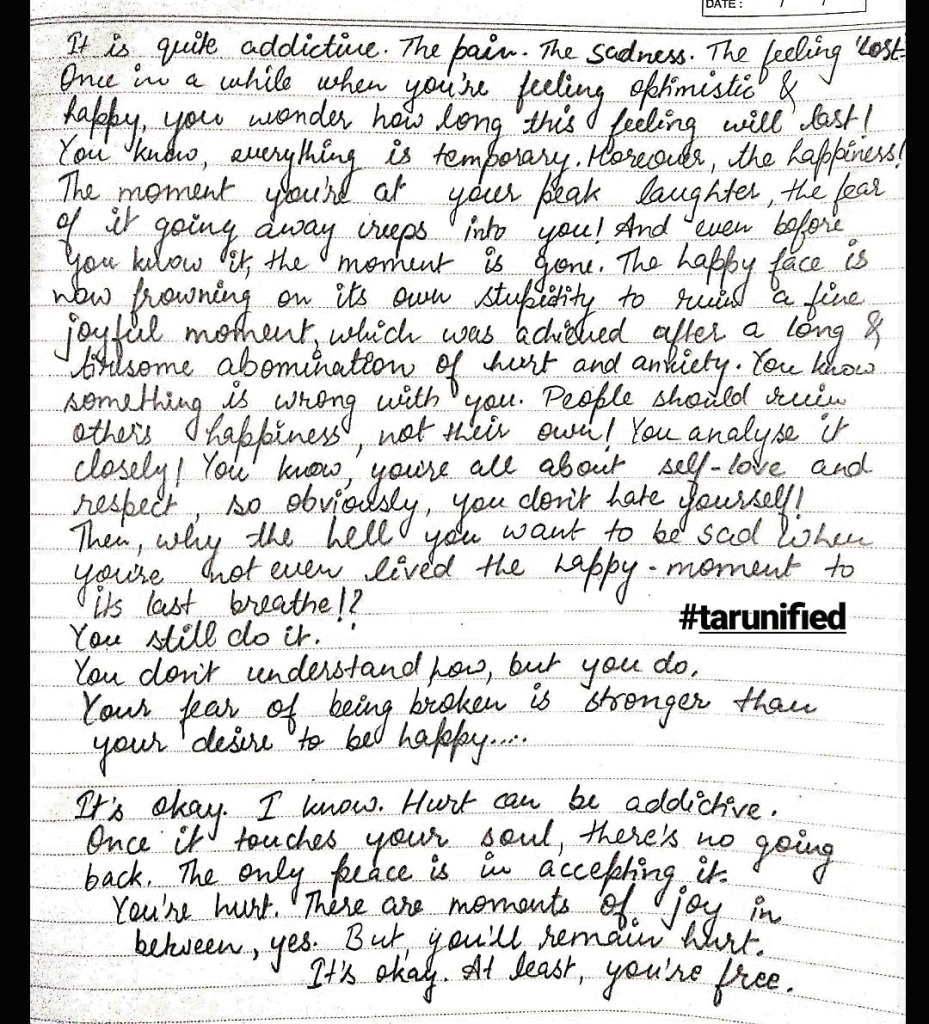 DATE: / /
It is quite addictive. The pain. The sadness. The feeling 'lost-
Once in a while when you're feeling optimistic &
happy, you wonder how long this feeling will last!
You know, everything is temporary. Moreover, the happiness!
The moment you're at your peak laughter, the fear
of it going away creeps into you! And even before
you know it, the moment is gone. The happy face is
now frowning on its own stupidity to ruin a fine
joyful moment, which was achieved after a long &
tiresome abomination of hurt and anxiety. You know
something is wrong with you. People should ruin
others happiness, not their own! You analyse it
closely! You know, you're all about self-love and
respect, so obviously, you don't hate yourself!
Then, why the hell you want to be sad when
you're not even lived the happy-moment to
its last breathe!?
#tarunified
You still do it.
You don't understand how, but you do.
Your fear of being broken is stronger than
your desire to be happy....
It's okay. I know. Hurt can be addictive.
Once it touches your soul, there's no going
back. The only peace is in accepting it.
You're hurt. There are moments of joy in
between, yes. But, you'll remain hurt.
It's okay. At least, you're free.